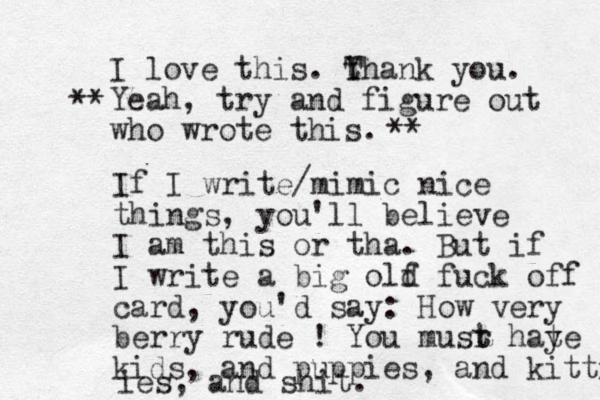 I love this. Thank you.
**Yeah, try and figure out
who wrote this.**
If I write/mimic nice
things, you'll believe
I am this or tha. But if
I write a big old fuck off
card, you'd say: How very
berry rude ! You must haye
kids, and puppies, and kitt
ies, and shit.